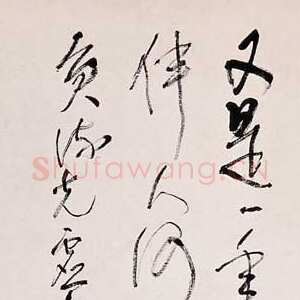 又是一年
伴人河
负流光虚
Shufawang.CN